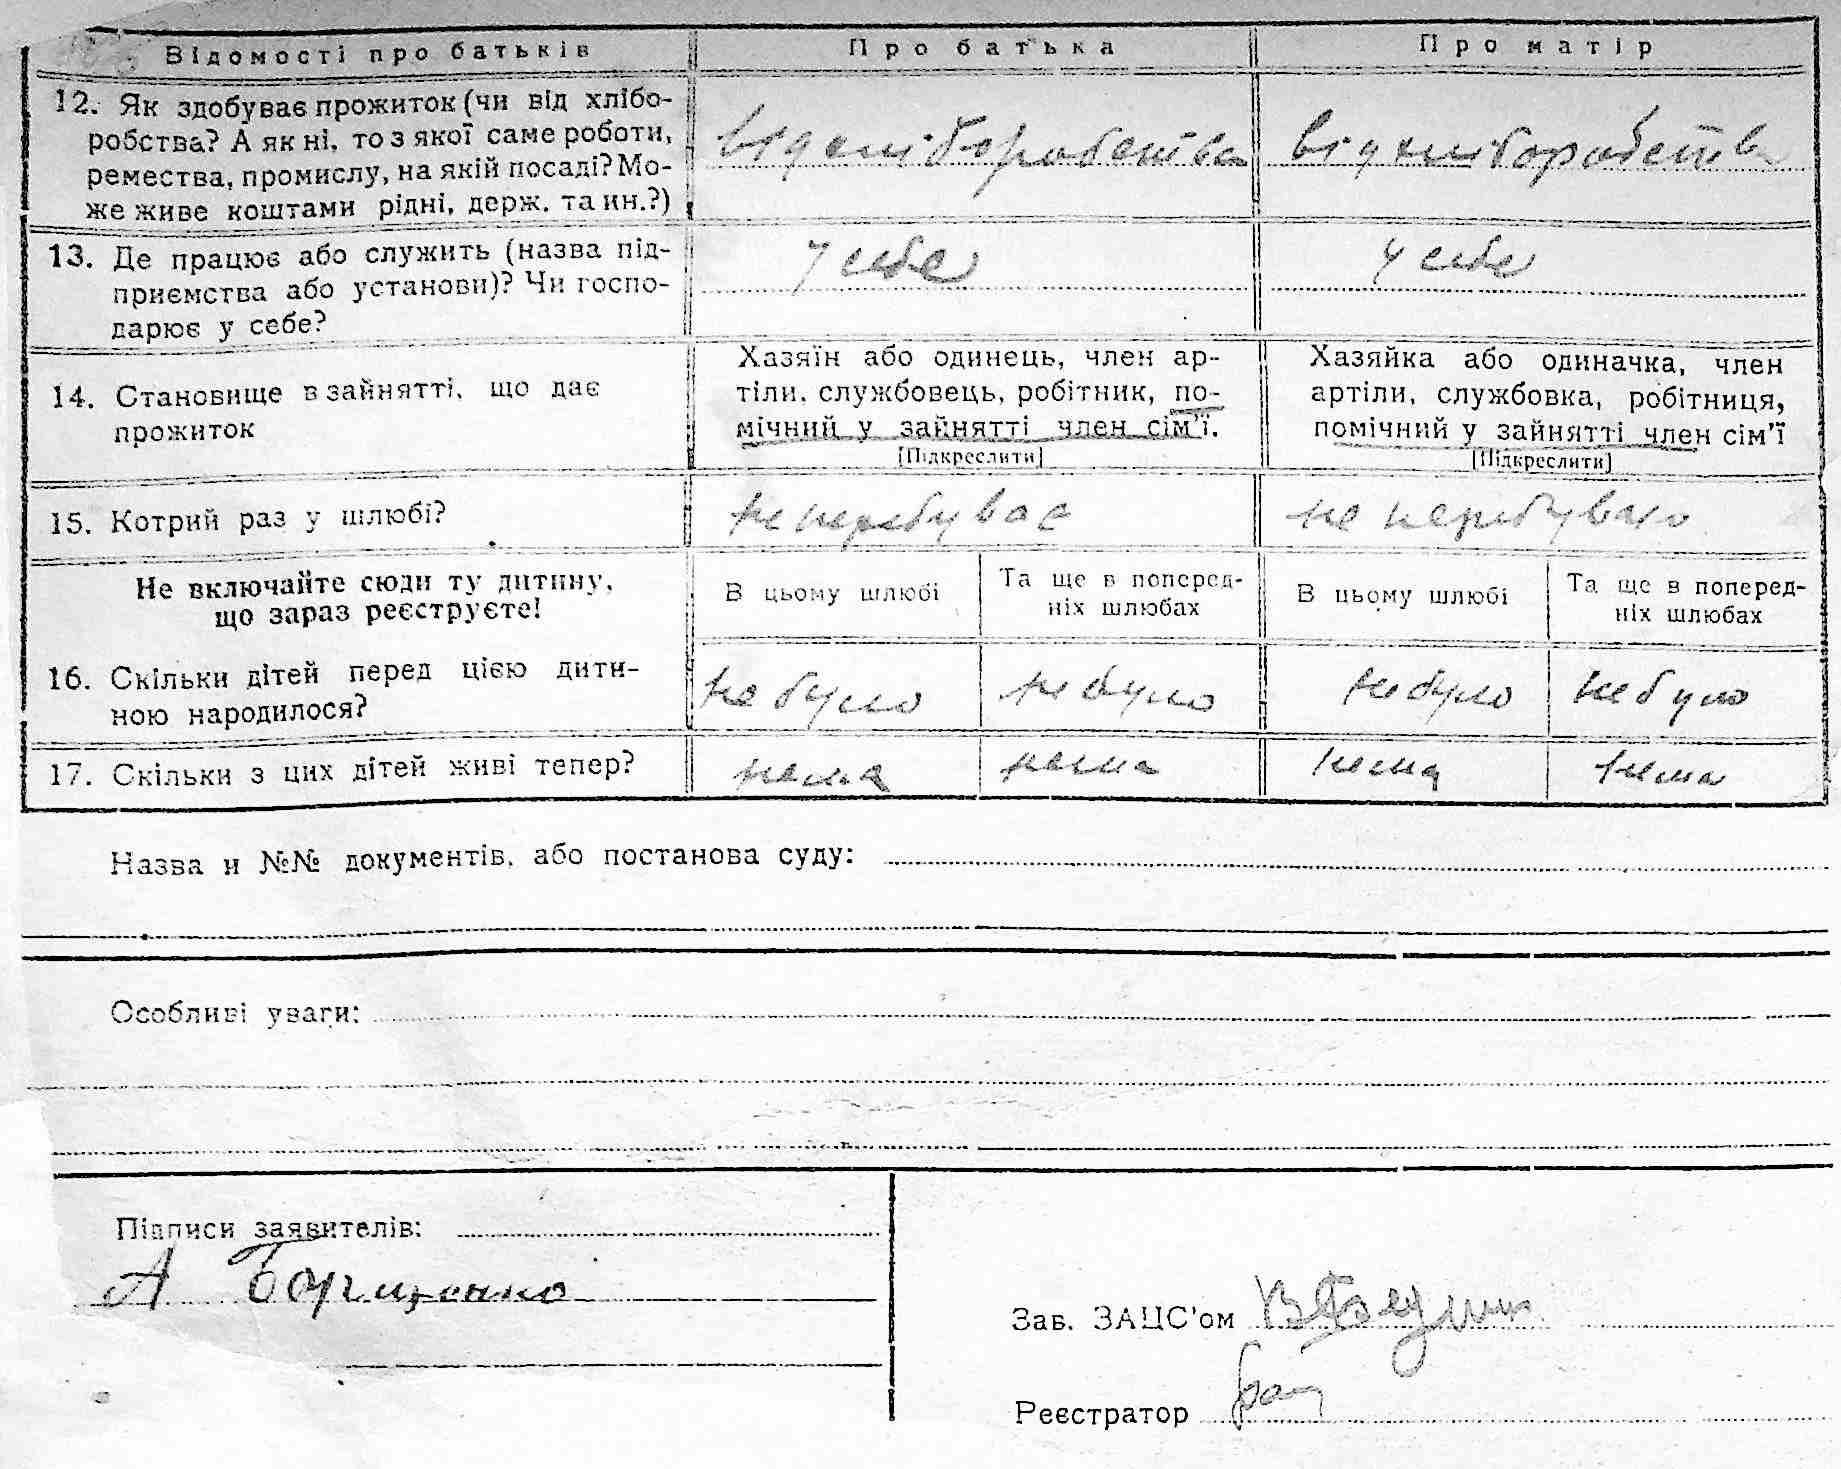 Відомості про батьків
Про батька
Про матір
12. Як здобуває прожиток (чи від хлібо-
робства? А як ні, то з якої саме роботи,
ремества, промислу, на якій посаді? Мо-
же живе коштами рідні, держ. та ин.?)
від хліборобства
від хліборобства
13. Де працює або служить (назва під-
приємства або установи)? Чи госпо-
дарює у себе?
у себе
у себе
14. Становище в зайнятті, що дає
прожиток
Хазяїн або одинець, член ар-
тіли, службовець, робітник, по-
мічний у зайнятті член сім'ї.
[Підкреслити]
Хазяйка або одиначка, член
артіли, службовка, робітниця,
помічний у зайнятті член сім'ї
[Підкреслити]
15. Котрий раз у шлюбі?
не перебуває
не перебуваю
Не включайте сюди ту дитину,
що зараз реєструєте!
В цьому шлюбі
Та ще в поперед-
ніх шлюбах
В цьому шлюбі
Та ще в поперед-
ніх шлюбах
16. Скільки дітей перед цією дити-
ною народилося?
не було
не було
не було
не було
17. Скільки з цих дітей живі тепер?
нема
нема
нема
нема
Назва и №№ документів, або постанова суду:
Особливі уваги:
Підписи заявителів:
А Борщенко
Зав. ЗАЦС'ом
Реєстратор